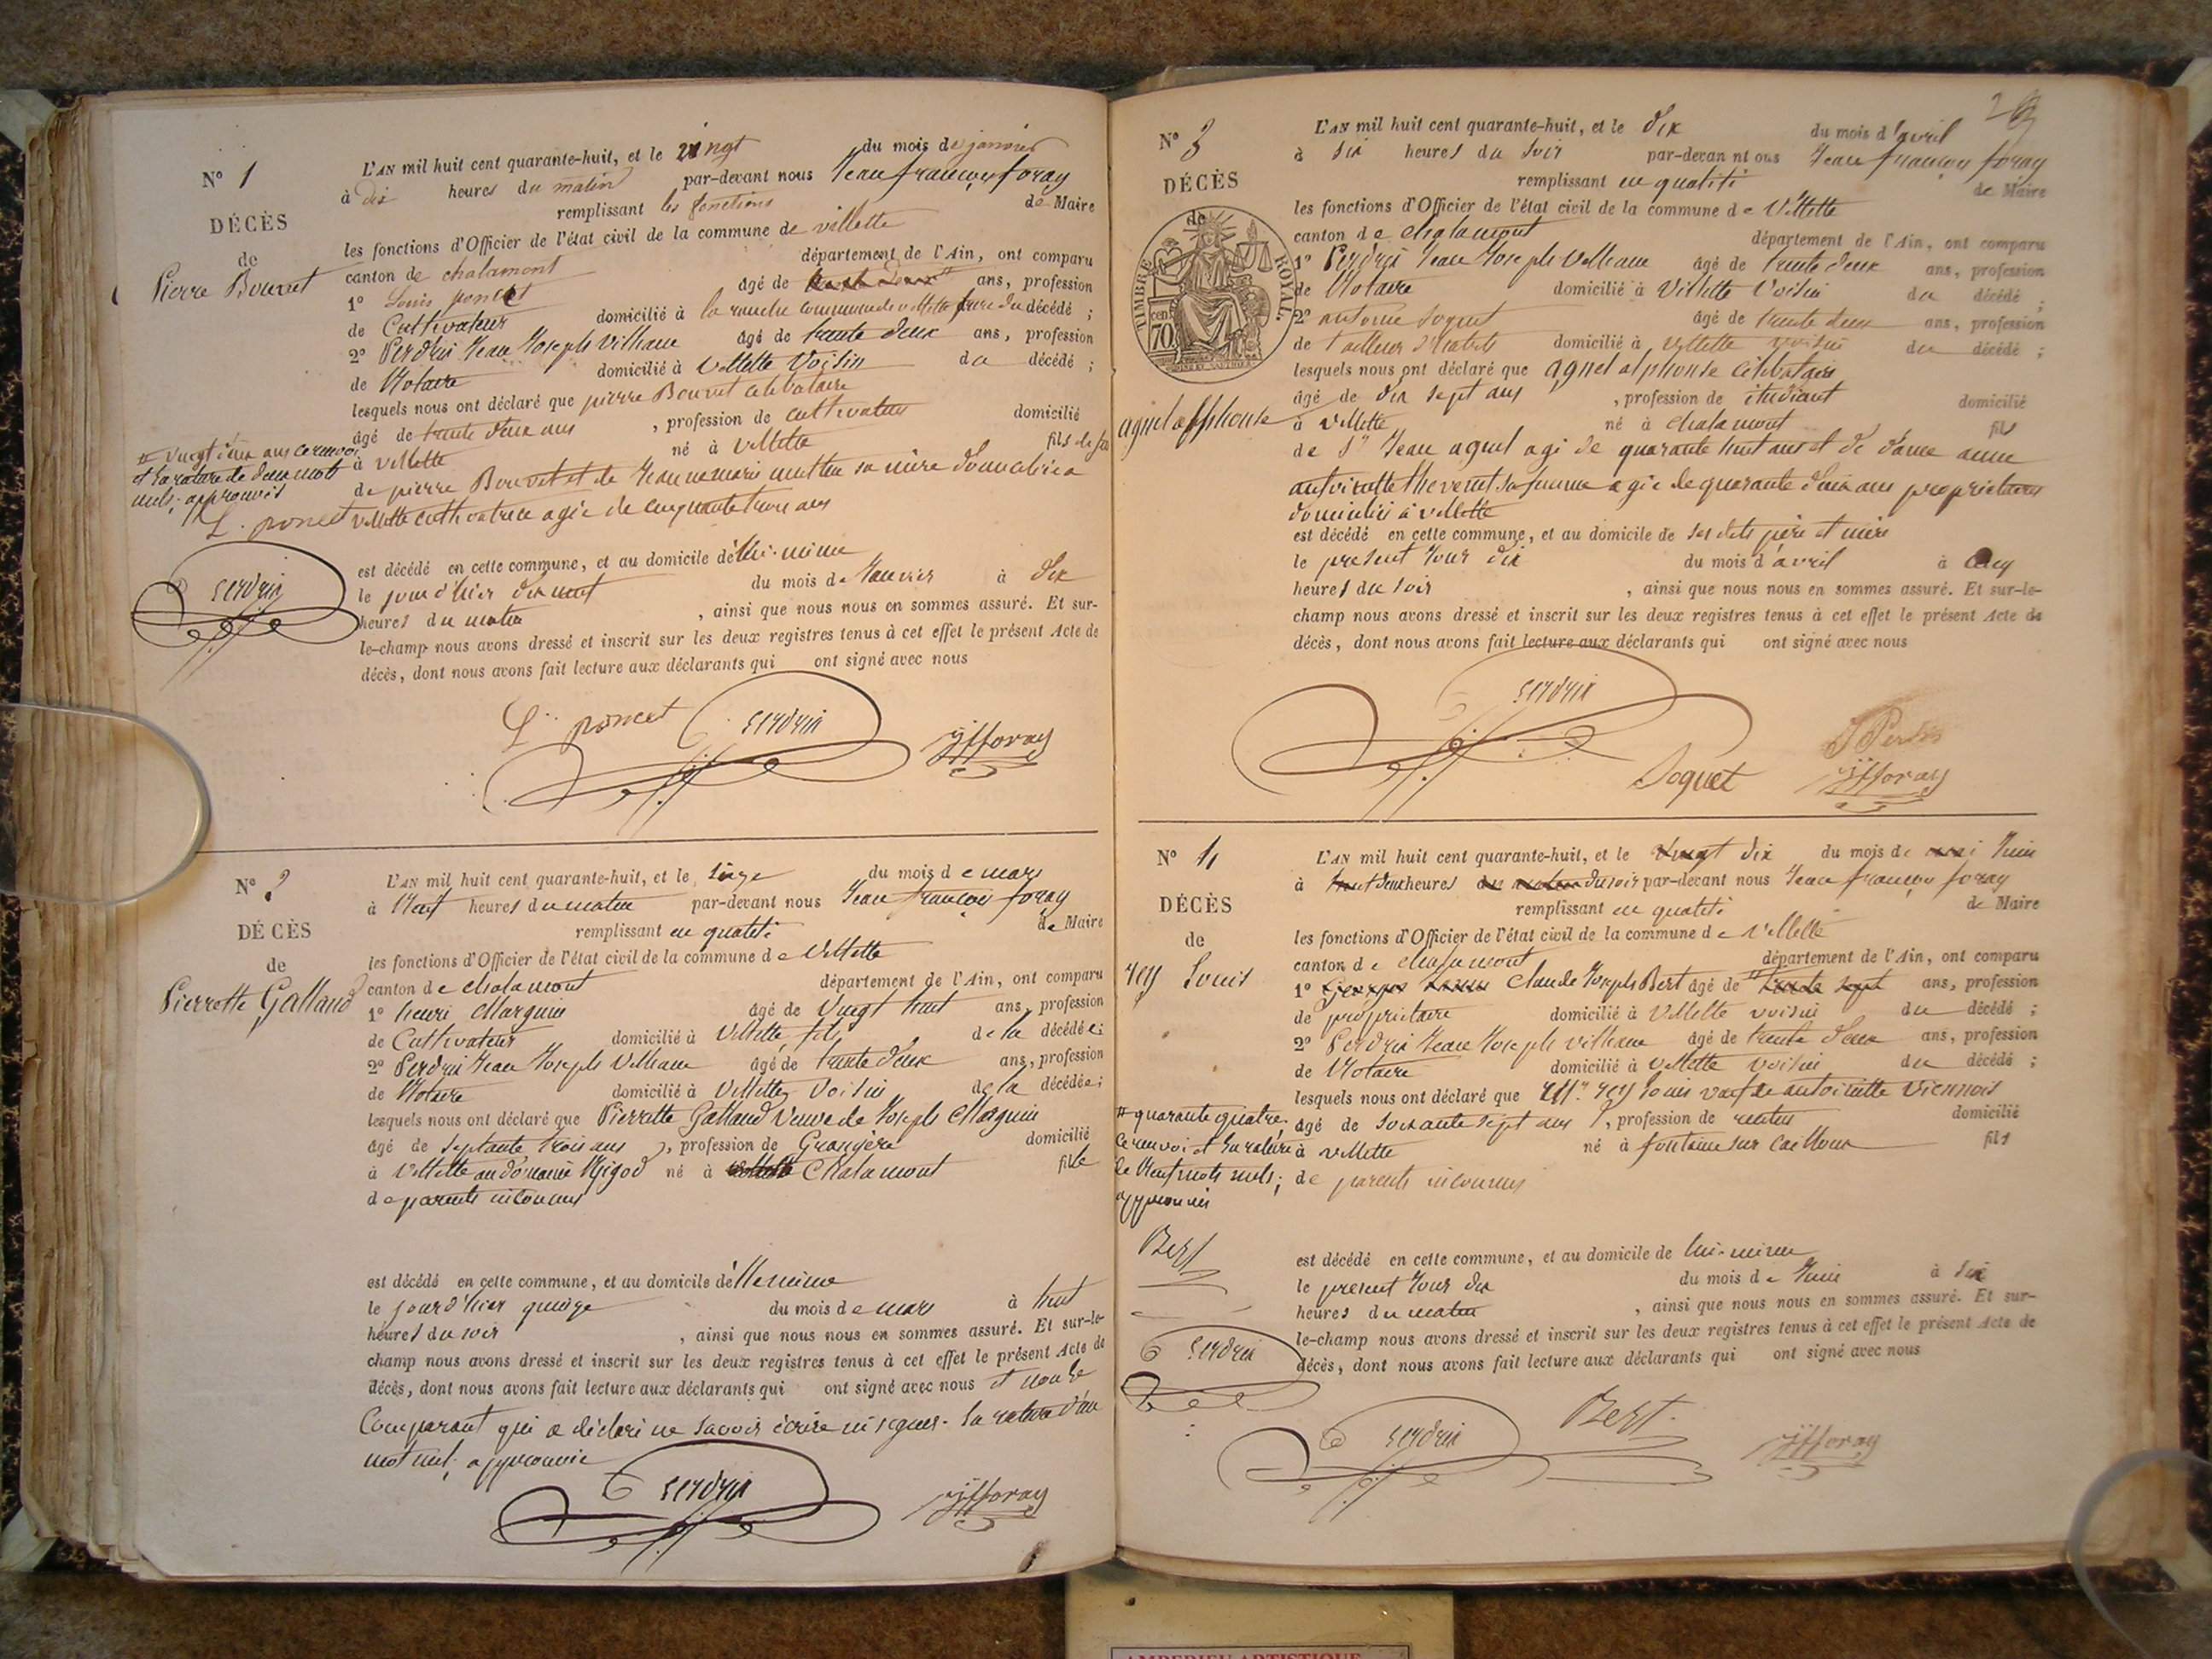 N° 1
DÉCÈS
de
Pierre Bouvret
L'AN mil huit cent quarante-huit, et le vingt du mois de janvier
à dix heures du matin par-devant nous Jean françois foray
remplissant les fonctions de Maire
les fonctions d'Officier de l'état civil de la commune de villette
canton de chalamont département de l'Ain, ont comparu
1° Louis poncet âgé de ans, profession
de Cultivateur domicilié à la commune de villette du décédé ;
2° Perdrix Jean Joseph Villeaume âgé de trente deux ans, profession
de Notaire domicilié à Villette Voisin du décédé ;
lesquels nous ont déclaré que pierre Bouvret celibataire
âgé de trente deux ans , profession de cultivateur domicilié
à villette né à villette fils de feu
de pierre Bouvret et de Jeanne marie sa mère domiciliée a
villette cultivatrice agée de cinquante trois ans
# vingt deux ans ce renvoi
et la rature de deux mots
nuls, approuvés
L. poncet
Perdrix
est décédé en cette commune, et au domicile de lui-même
le jour d'hier dix neuf du mois de Janvier à dix
heures du matin , ainsi que nous nous en sommes assuré. Et sur-
le-champ nous avons dressé et inscrit sur les deux registres tenus à cet effet le présent Acte de
décès, dont nous avons fait lecture aux déclarants qui ont signé avec nous
L. poncet Perdrix jfforay
N° 2
DÉCÈS
de
Pierrette Galland
L'AN mil huit cent quarante-huit, et le seize du mois de mars
à Neuf heures du matin par-devant nous Jean françois foray
remplissant en qualité de Maire
les fonctions d'Officier de l'état civil de la commune de Villette
canton de chalamont département de l'Ain, ont comparu
1° henri Marguin âgé de Vingt huit ans, profession
de Cultivateur domicilié à Villette fils de la décédée ;
2° Perdrix Jean Joseph Villeaume âgé de trente deux ans, profession
de Notaire domicilié à Villette, Voisin de la décédée ;
lesquels nous ont déclaré que Pierrette Galland Veuve de Joseph Marguin
âgé de septante trois ans , profession de Grangère domicilié
à Villette au domaine Migod né à Chalamont fille
de parents inconnus
est décédé en cette commune, et au domicile d'elle même
le jour d'hier quinze du mois de mars à huit
heures du soir , ainsi que nous nous en sommes assuré. Et sur-le-
champ nous avons dressé et inscrit sur les deux registres tenus à cet effet le présent Acte de
décès, dont nous avons fait lecture aux déclarants qui ont signé avec nous et non le
Comparant qui a déclaré ne savoir écrire ni signer. la rature d'un
mot nul, approuvée
Perdrix jfforay
N° 3
DÉCÈS
de
TIMBRE ROYAL.
70 cen
agnel alphonse
L'AN mil huit cent quarante-huit, et le dix du mois d'avril
à six heures du soir par-devant nous Jean françois foray
remplissant en qualité de Maire
les fonctions d'Officier de l'état civil de la commune de Villette
canton de chalamont département de l'Ain, ont comparu
1° Perdrix Jean Joseph Villeaume âgé de trente deux ans, profession
de Notaire domicilié à Villette Voisin du décédé ;
2° antoine Soquet âgé de trente deux ans, profession
de tailleur d'habits domicilié à villette voisin du décédé ;
lesquels nous ont déclaré que agnel alphonse célibataire
âgé de dix sept ans , profession de étudiant domicilié
à villette né à chalamont fils
de Sr Jean agnel agé de quarante huit ans et de dame anne
antoinette thevenet sa femme agée de quarante deux ans proprietaires
domiciliés à villette
est décédé en cette commune, et au domicile de ses dits père et mère
le présent jour dix du mois d'avril à cinq
heures du soir , ainsi que nous nous en sommes assuré. Et sur-le-
champ nous avons dressé et inscrit sur les deux registres tenus à cet effet le présent Acte de
décès, dont nous avons fait lecture aux déclarants qui ont signé avec nous
Perdrix
Soquet jfforay
N° 4
DÉCÈS
de
rey Louis
L'AN mil huit cent quarante-huit, et le vingt dix du mois de mai Juin
à deux heures du soir par-devant nous Jean françois foray
remplissant en qualité de Maire
les fonctions d'Officier de l'état civil de la commune de Villette
canton de chalamont département de l'Ain, ont comparu
1° Claude Joseph Bert âgé de # trente sept ans, profession
de propriétaire domicilié à Villette voisin du décédé ;
2° Perdrix Jean Joseph Villeaume âgé de trente deux ans, profession
de Notaire domicilié à villette voisin du décédé ;
lesquels nous ont déclaré que rey Louis veuf de antoinette Viennois
âgé de soixante sept ans , profession de rentier domicilié
à villette né à fontaine sur Cailloux fils
de parents inconnus
# quarante quatre,
ce renvoi et la rature
de neuf mots nuls,
approuvés
Bert
Perdrix
est décédé en cette commune, et au domicile de lui-même
le present jour dix du mois de Juin à six
heures du matin , ainsi que nous nous en sommes assuré. Et sur-
le-champ nous avons dressé et inscrit sur les deux registres tenus à cet effet le présent Acte de
décès, dont nous avons fait lecture aux déclarants qui ont signé avec nous
Perdrix Bert. jfforay
AMBERIEU ARTISTIQUE